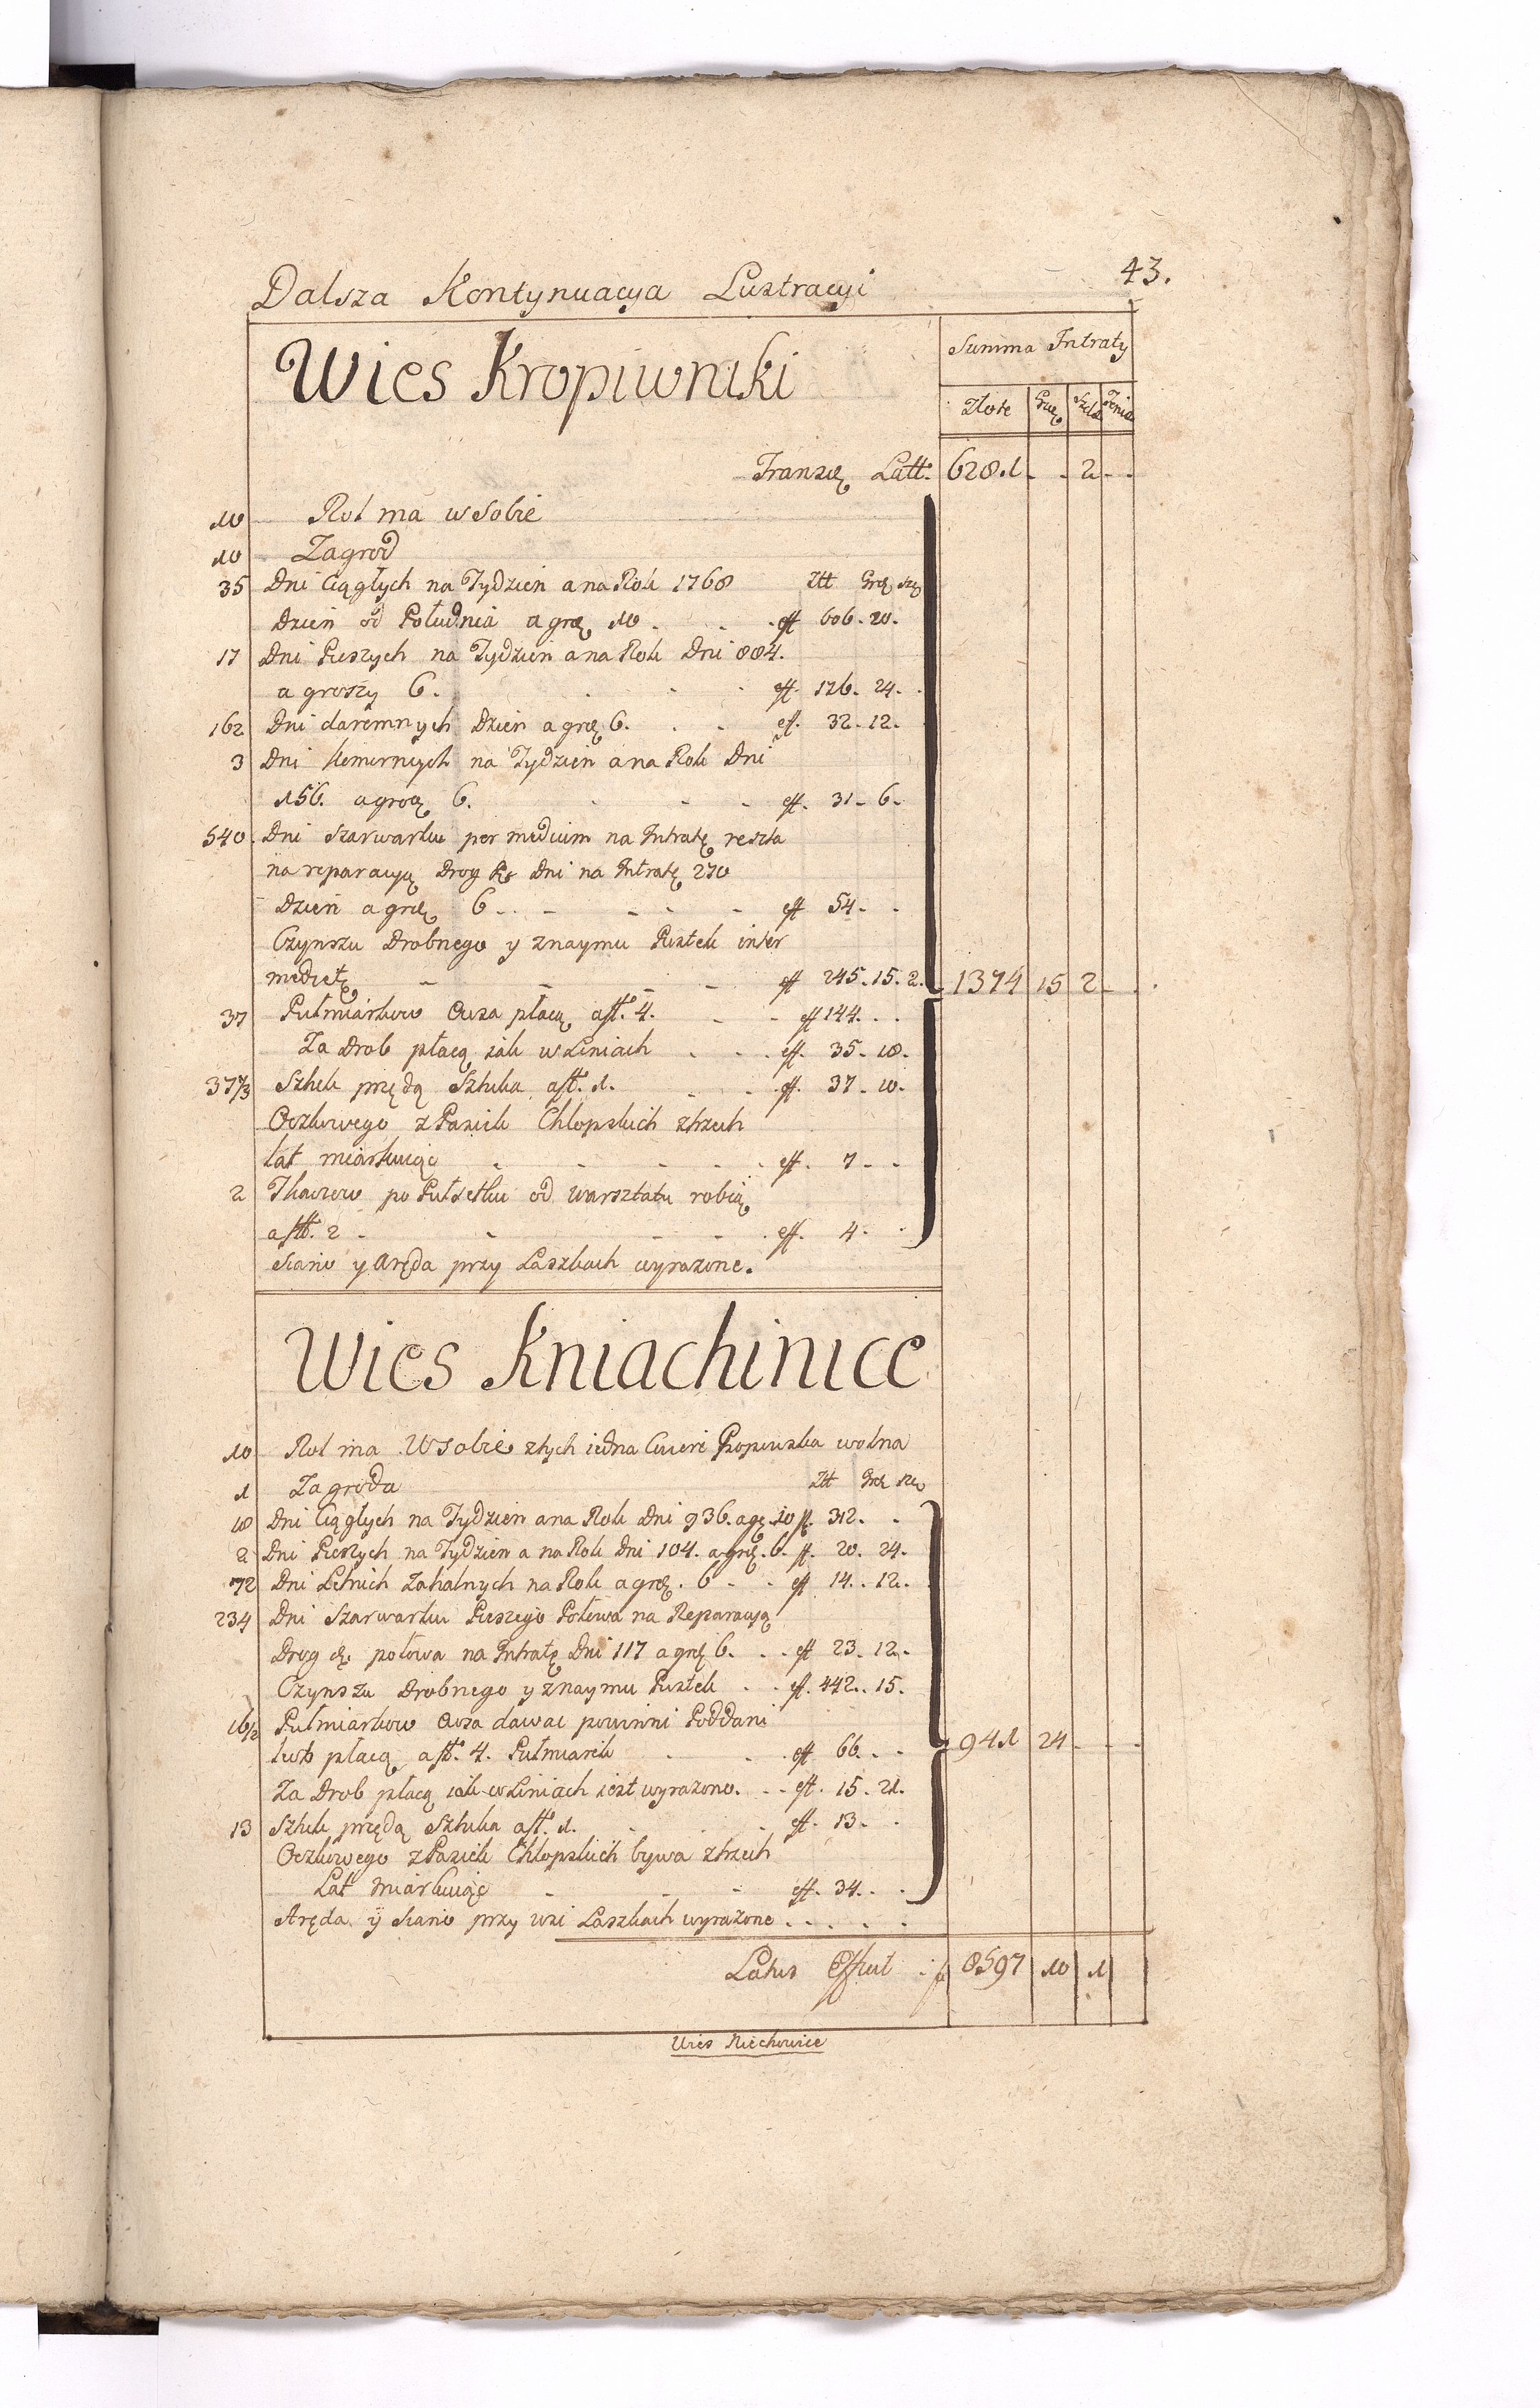 Dalsza Kontynuacya Lustracyi 43.
Wies Kropiwniki
Summa Intraty
Złote Grosz Szelą
Transię Latt. 6281 - - 2 - -
10 Rol ma w sobie
10 Zagrod
35 Dni Ciągłych na Tydzien a na Rok 1768 Ztt Groę szę
Dzien od Południa a groę 10 . . . eff 606. 20.
17 Dni Pieszych na Tydzien a na Rok Dni 884.
a groszy 6. . . . eff. 176. 24.
162 Dni daremnych Dzien a groę 6. . . eff. 32. 12.
3 Dni komornych na Tydzien a na Rok Dni
156. a groę 6. - - - eff. 31. 6.
540. Dni Szarwarku per medium na Intratę reszta
na reparacyą Drog &c Dni na Intratę 270
Dzien a groę 6 - - - - eff 54. -
Czynszu Drobnego y znaymu Pustek inter
medietę - - - - eff 245. 15. 2. 1374 15 2 - .
37 Pułmiarkow Owsa płacą a ff. 4. - - eff 144. . .
Za Drob płacą iak w Liniach . . . eff. 35. 18.
37⅓ Sztuk przędą Sztuka a ff. 1. . . . eff. 37. 10.
Oczkowego z Pasiek Chłopskich z trzech
lat miarkuiąc - - - - eff. 7. - -
2 Tkaczow po Pułsetku od warsztatu robią
a ff. 2 - - - - eff. 4. .
Siano y Aręda przy Laszkach wyrazone.
Wies Kniachinice
10 Rol ma W sobie z tych iedna Cwierć Popowska wolna
1 Zagroda Ztt Groę szę
18 Dni Ciągłych na Tydzien a na Rok Dni 936. a gę. 10 ff. 312. .
2 Dni Pieszych na Tydzien a na Rok Dni 104. a groę. 6. ff. 20. 24.
72 Dni Letnich Zakalnych na Rok a groę. 6 - - eff 14. 12.
234 Dni Szarwarku Pieszego Połowa na Reparacyą
Drog &c. połowa na Intratę Dni 117 a groę 6. . . eff 23. 12.
Czynszu Drobnego y znaymu Pustek . . eff. 442. 15.
16½ Pułmiarkow Owsa dawac powinni Poddani
lub płacą a ff. 4. Pułmiarek . . . eff 66. - - 941 24 - - -
Za Drob płacą iak w Liniach iest wyrazono. . . eff. 15. 21.
13 Sztuk przędą Sztuka a ff. 1. . . . eff. 13. .
Oczkowego z Pasiek Chłopskich bywa z trzech
Lat miarkuiąc - - - eff. 34. . .
Aręda y Siano przy wsi Laszkach wyrazone . . . . .
Latus Effcit . ff 8597 10 1
Wies Niechowice